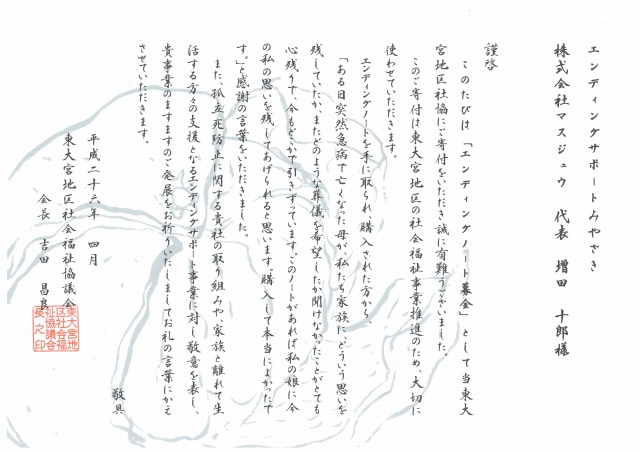 エンディングサポートみやざき
株式会社マスジュウ 代表 増田 十郎様
謹啓
このたびは「エンディングノート募金」として当東大
宮地区社協にご寄付をいただき誠に有難うございました。
このご寄付は東大宮地区の社会福祉事業推進のため、大切に
使わせていただきます。
エンディングノートを手に取られ、購入された方から、
「ある日突然急病で亡くなった母が、私たち家族に、どういう思いを
残していたか、またどのような葬儀を希望したか聞けなかったことがとても
心残りで、今もどこかで引きずっています。このノートがあれば私の娘に今
の私の思いを残してあげられると思います。購入して本当によかったで
す。」と感謝の言葉をいただきました。
また、孤立死防止に関する貴社の取り組みや、家族と離れて生
活する方々の支援となるエンディングサポート事業に対し敬意を表し、
貴事業のますますのご発展をお祈りいたしましてお礼の言葉にかえ
させていただきます。
敬具
平成二十六年 四月
東大宮地区社会福祉協議会
会長 吉田 昌良
東大宮地
区社会福
祉協議会
長之印